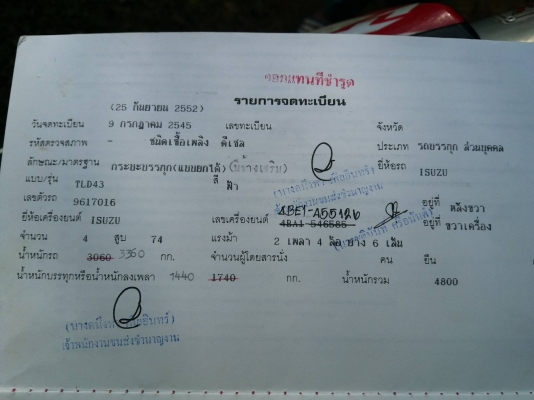 ออกแทนที่ชำรุด
(25 กันยายน 2552) รายการจดทะเบียน
วันจดทะเบียน 9 กรกฎาคม 2545 เลขทะเบียน จังหวัด
รหัสตรวจสภาพ - ชนิดเชื้อเพลิง ดีเซล ประเภท รถบรรทุก ส่วนบุคคล
ลักษณะ/มาตรฐาน กระบะบรรทุก(แบบยกได้) ยี่ห้อรถ
แบบ/รุ่น TLD43 สี ฟ้า ISUZU
เลขตัวรถ 9617016 4BE1-A55126 อยู่ที่ หลังขวา
ยี่ห้อเครื่องยนต์ ISUZU เลขเครื่องยนต์ 4BA1 546585 อยู่ที่ ขวาเครื่อง
จำนวน 4 สูบ 74 แรงม้า 2 เพลา 4 ล้อ ยาง 6 เส้น
น้ำหนักรถ 3060 3360 กก. จำนวนผู้โดยสารนั่ง คน ยืน
น้ำหนักบรรทุกหรือน้ำหนักลงเพลา 1440 1740 กก. น้ำหนักรวม 4800
เจ้าพนักงานขนส่งชำนาญงาน